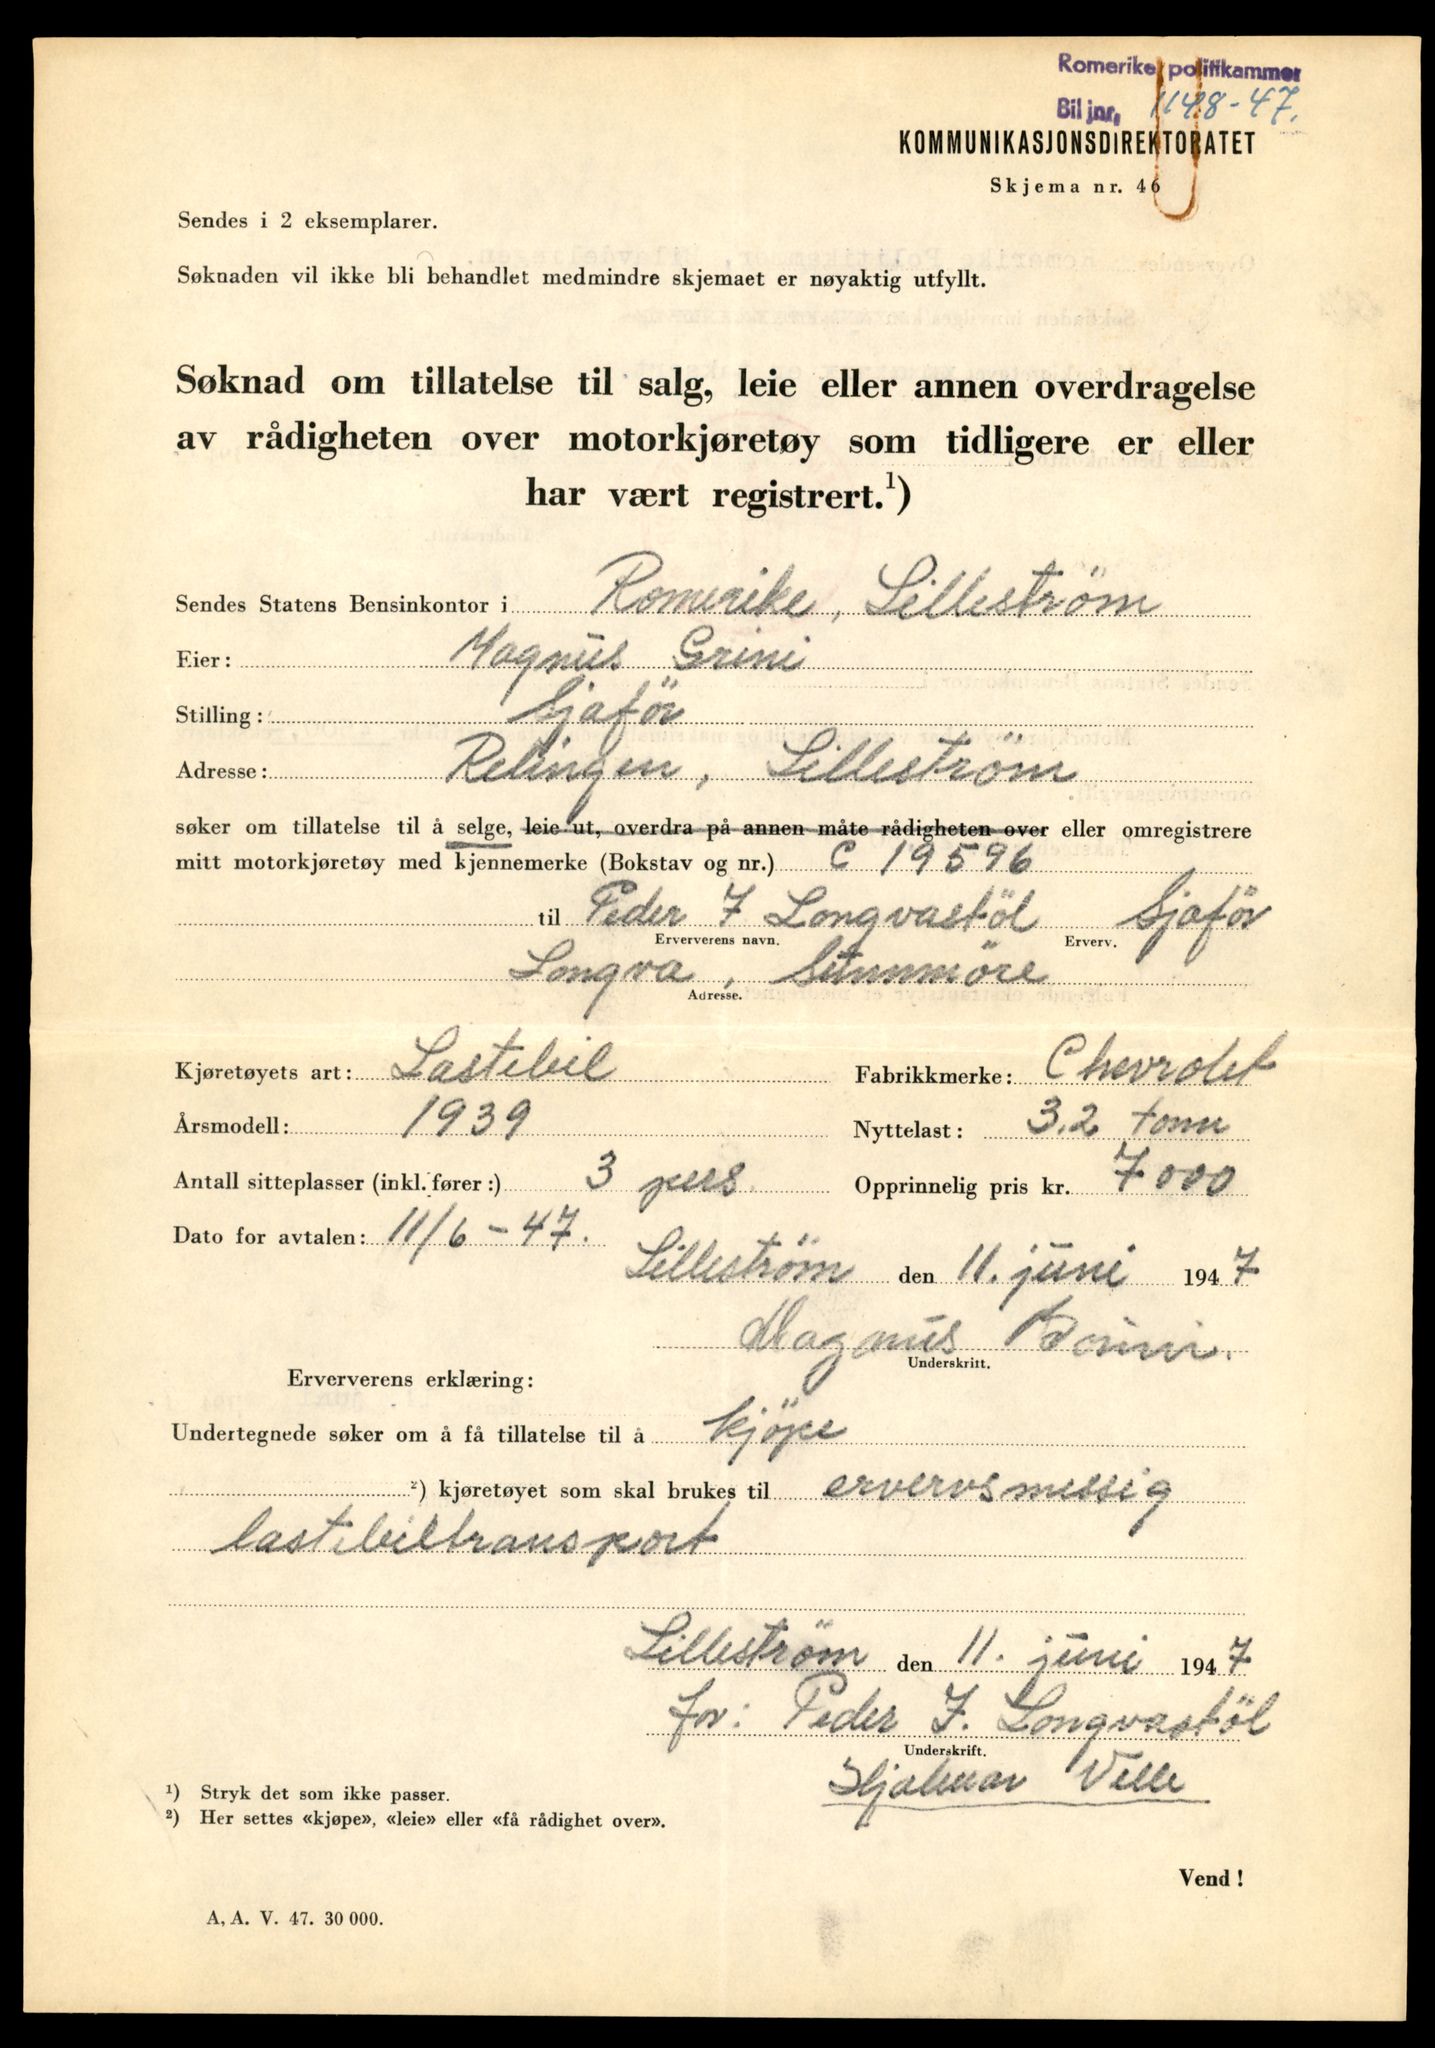 Romerike politikammer
Bil jnr. 1148-47.
KOMMUNIKASJONSDIREKTORATET
Skjema nr. 46
Sendes i 2 eksemplarer.
Søknaden vil ikke bli behandlet medmindre skjemaet er nøyaktig utfyllt.
Søknad om tillatelse til salg, leie eller annen overdragelse
av rådigheten over motorkjøretøy som tidligere er eller
har vært registrert.¹)
Sendes Statens Bensinkontor i Romerike, Lilleström
Eier: Magnus Grini
Stilling: Sjaför
Adresse: Relingen, Lilleström
søker om tillatelse til å selge, leie ut, overdra på annen måte rådigheten over eller omregistrere
mitt motorkjøretøy med kjennemerke (Bokstav og nr.) C 19596
til Peder J Longvastöl Sjaför
Erververens navn. Erverv.
Longva, Sunnmöre
Adresse.
Kjøretøyets art: Lastebil Fabrikkmerke: Chevrolet
Årsmodell: 1939 Nyttelast: 3.2 tonn
Antall sitteplasser (inkl. fører:) 3 pers. Opprinnelig pris kr. 7000
Dato for avtalen: 11/6-47.
Lilleström den 11. juni 1947
Magnus Grini.
Underskrift.
Erververens erklæring:
Undertegnede søker om å få tillatelse til å kjöpe
²) kjøretøyet som skal brukes til ervervsmessig
lastebiltransport
Lilleström den 11. juni 1947
for: Peder J. Longvastöl
Underskrift.
Hjalmar Velle
¹) Stryk det som ikke passer.
²) Her settes «kjøpe», «leie» eller «få rådighet over».
Vend!
A. A. V. 47. 30 000.